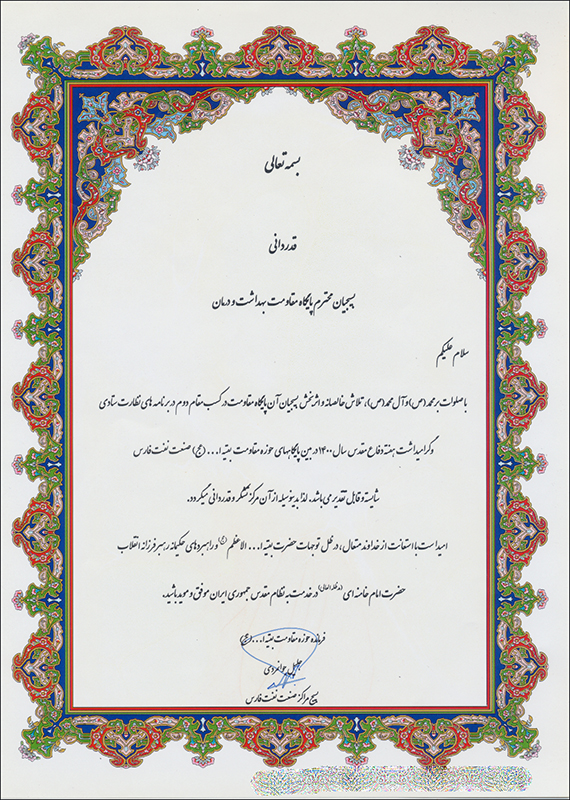 بسمه تعالی
قدردانی
بسیجیان محترم پایگاه مقاومت بهداشت و درمان
سلام علیکم
با صلوات بر محمد (ص) و آل محمد (ص)، تلاش خالصانه و اثربخش بسیجیان آن پایگاه مقاومت در کسب مقام دوم در برنامه های نظارت ستادی
و گرامیداشت هفته دفاع مقدس سال ۱۴۰۰ در بین پایگاههای حوزه مقاومت بقیه ا... (عج) صنعت نفت فارس
شایسته و قابل تقدیر می باشد. لذا بدینوسیله از آن مرکز تشکر و قدردانی میگردد.
امید است با استعانت از خداوند متعال، در ظل توجهات حضرت بقیه ا... الاعظم (عج) و راهبردهای حکیمانه رهبر فرزانه انقلاب
حضرت امام خامنه ای (مدظله العالی) در خدمت به نظام مقدس جمهوری ایران موفق و موید باشید.
فرمانده حوزه مقاومت بقیه ا... (عج)
جلیل جوانمردی
بسیج مراکز صنعت نفت فارس